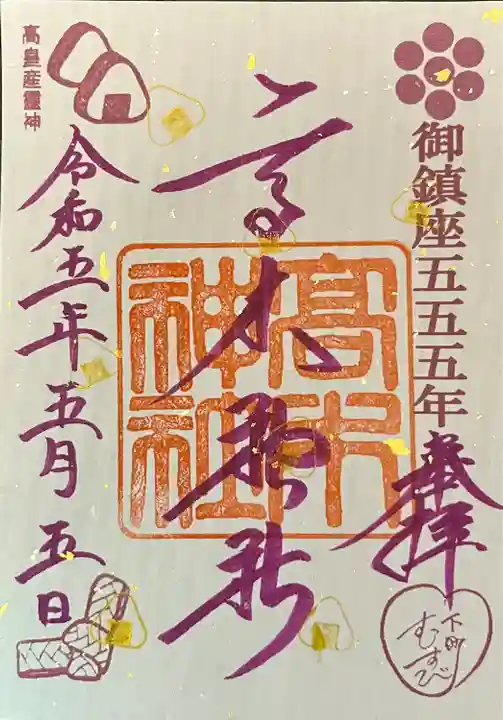 御鎮座五五五年
奉拝
下町
むすび
高木神社
髙木神社
高皇産霊神
令和五年五月五日